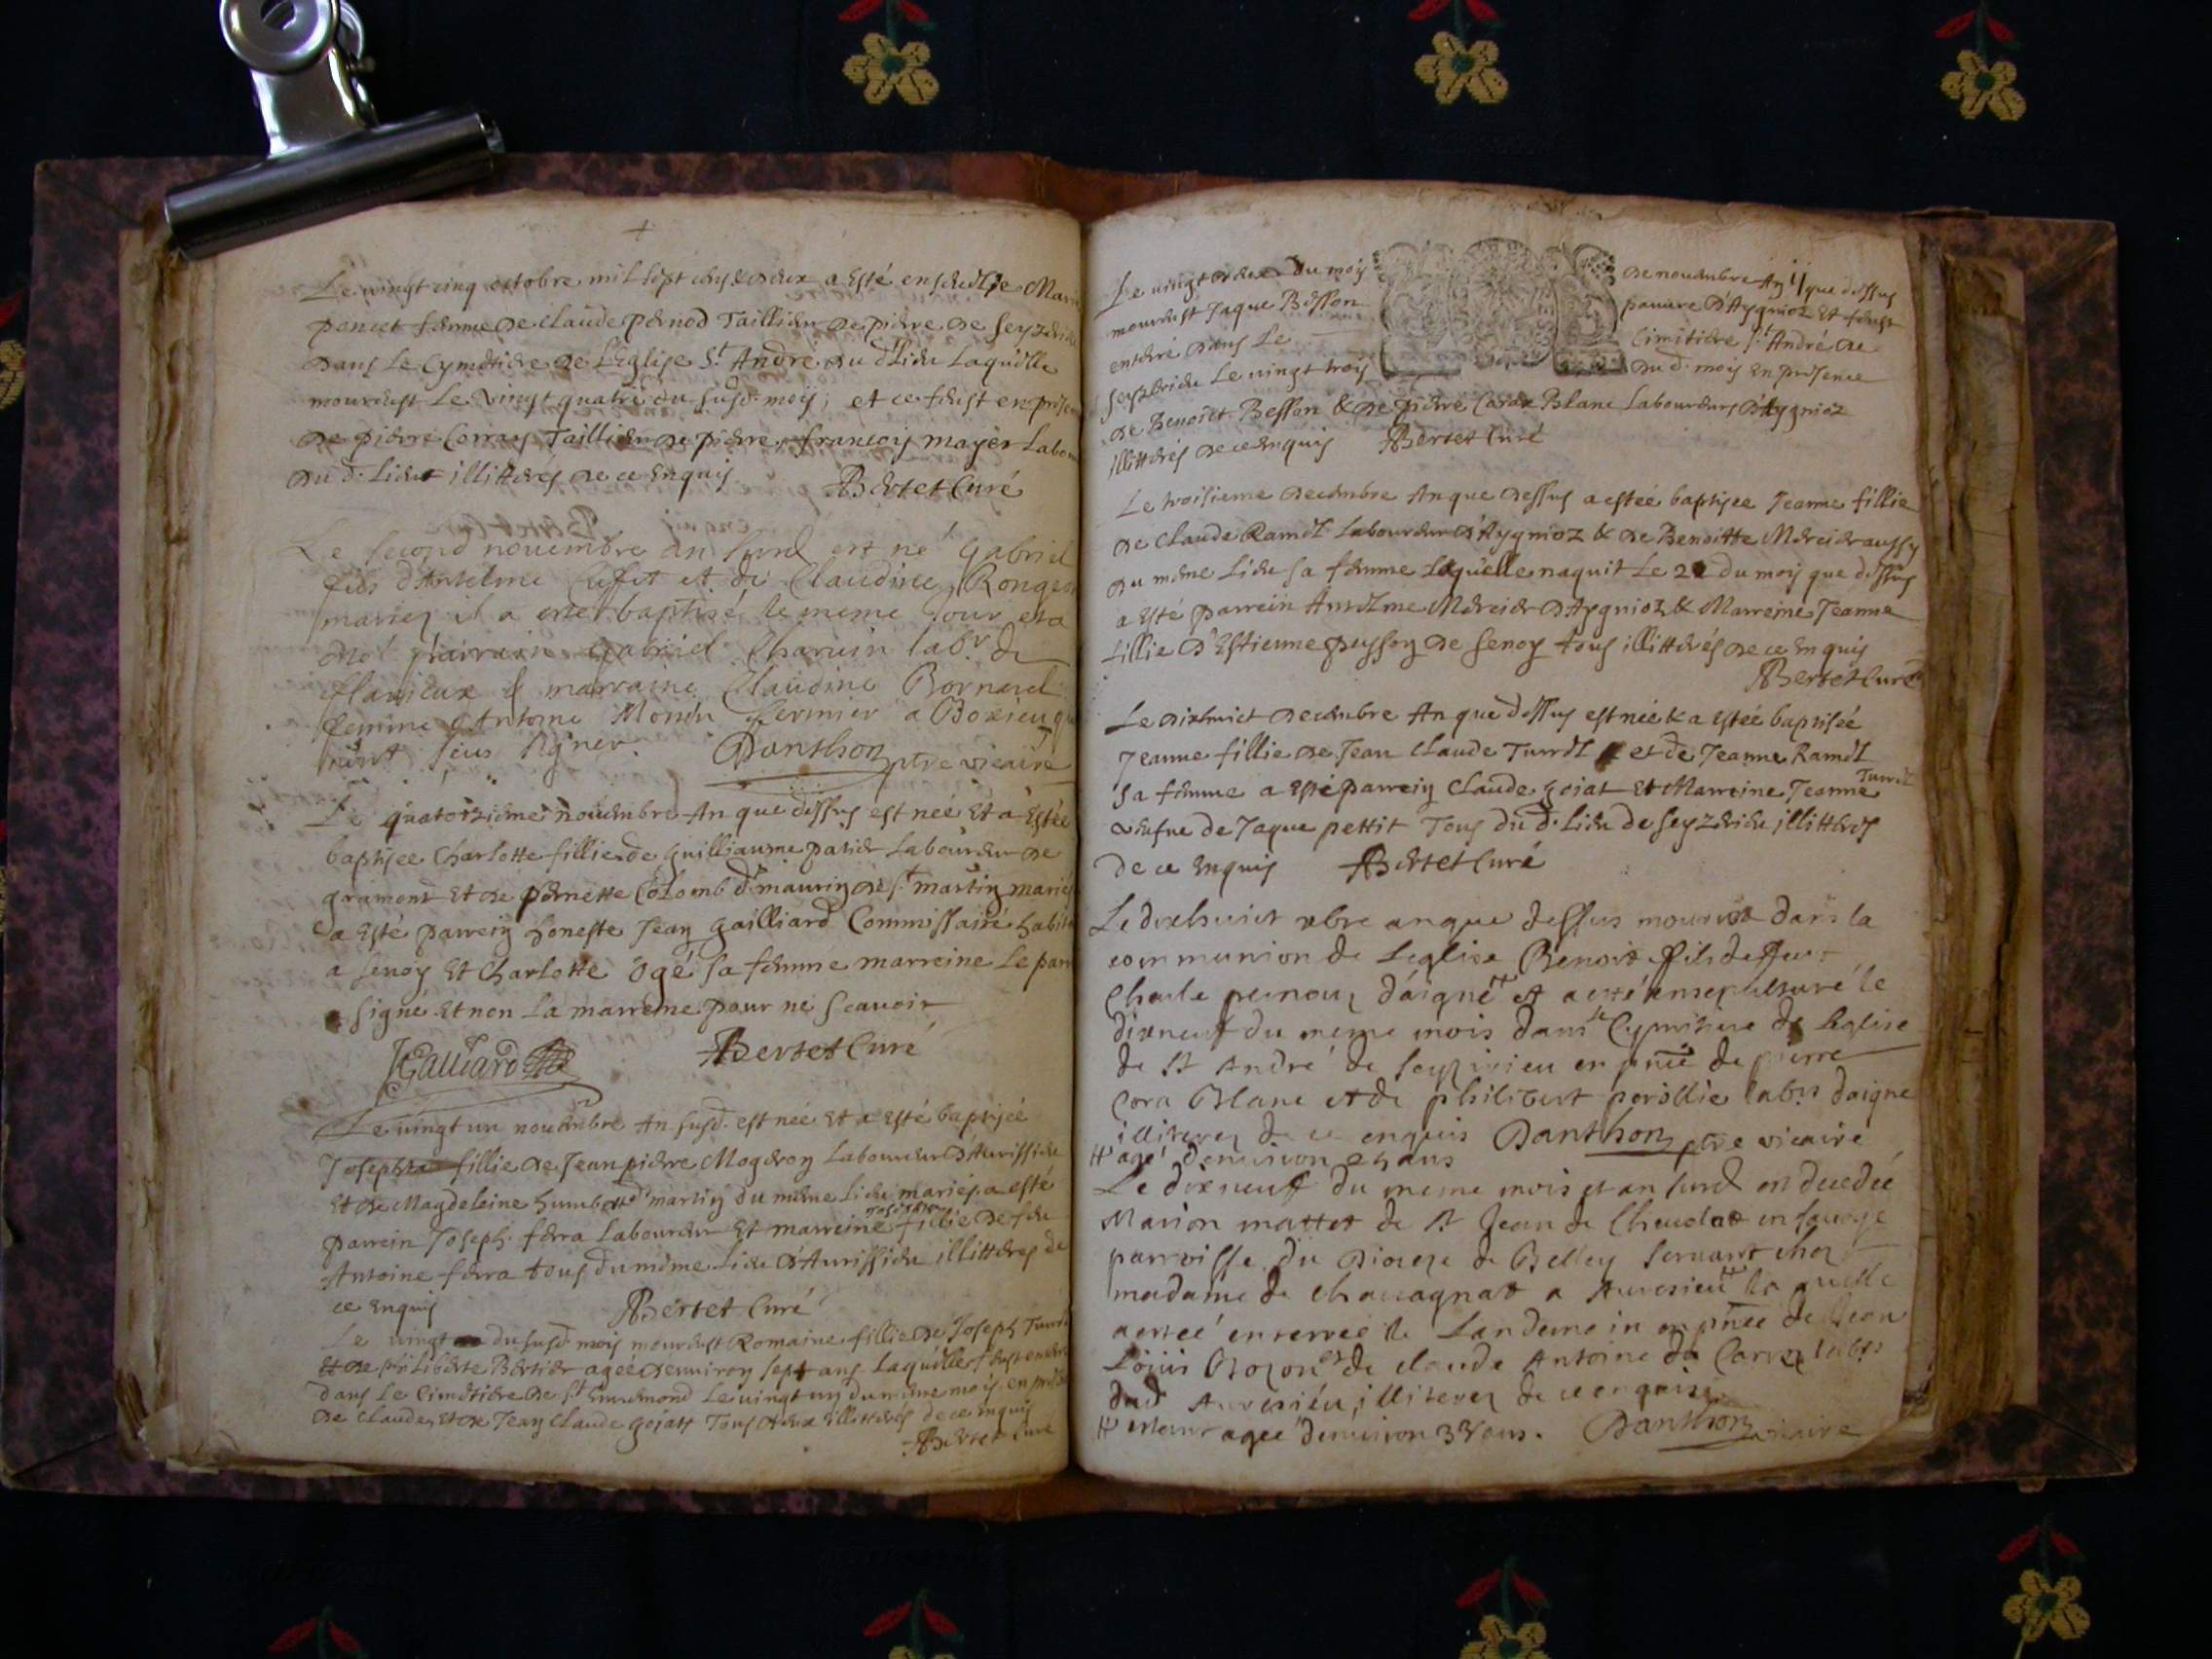 Le vingt cinq octobre mil sept cens & deux a esté ensevelie Marie
poncet femme de Claude pernod Taillieu de pierre de Seyzerieu
dans Le Cymetiere de L'Eglise St. André du d. Lieu Laquelle
mourust Le vingt quatre du susd. mois, et ce feust en presen
de pierre Taillieu de pierre francois mayer Labou
du d. Lieu illitteres de ce enquis
Bertet Curé
Le second novembre an susd est né Gabriel
fils d'Antelme et de Claudine Ronge
mariez il a esté baptisé le meme jour et a
parrain gabriel Charvin labr. de
Flaxieux & marraine Claudine Bornard
femme d'Antoine fermier a
Signer. Danthon ptre vicaire
Le quatorzieme novembre An que dessus est neé et a Estée
baptisee Charlotte fillie de guilliaume patier Laboureur de
gramont et de pernette Colomb de St martin mariés
a Esté parrein honeste Jean gailliard Commissaire habit
a Senoy Et Charlotte ogé sa femme marreine Le parr
signé Et non La marreine pour ne scavoir
JGalliard Bertet Curé
Le vingt un novembre An susd. est née Et a Esté baptiseé
Josephte fillie de Jean pierre Mogeron Laboureur d'Aurissieu
Et de Magdeleine humbert martin du méme Lieu mariés a esté
parrein Joseph ferra Laboureur Et marreine Josephte fillie de feu
Antoine ferra tous du méme Lieu d'Aurissieu illitteres de
ce Enquis Bertet Curé
Le vingt du susd mois mourust Romaine fillie de Joseph
Et de philiberte Bertier ageé d'environ sept ans Laquelle feust
dans Le Cimetiere de St Le vingt un du méme mois en
de Claude, et de Jean Claude gojatt Tous deux illitterés de ce enquis
Bertet Curé
Le vingt deux du mois de novembre An que dessus
mourust Jaque Besson pauvre d'Aygnioz Et feust
enterré dans Le Cimitiere St. André de
Seyzerieu Le vingt trois du d. mois en presence
de Benoict Besson & de pierre Blanc Laboureurs d'Aygnioz
illitterés de ce enquis Bertet Curé
Le troisieme decembre An que dessus a estée baptisee Jeanne fillie
de Claude Ramel Laboureur d'Aygnioz & de Benoitte Mercier aussy
du méme Lieu sa femme Laquelle naquit Le du mois que dessus
a Esté parrein Antelme Mercier d'Aygnioz & Marreine Jeanne
fillie d'Estienne de Senoy tous illitterés de ce Enquis
Bertet Curé
Le dixhuict decembre An que dessus est neé & a Esteé baptiseé
Jeanne fillie de Jean Claude Turrel et de Jeanne Ramel
sa femme a Esté parrein Claude gojat Et Marreine Jeanne Turrel
vefve de Jaque pettit Tous du d. Lieu de Seyzerieu illitteres
de ce Enquis Bertet Curé
Le dixhuict xbre an que dessus mourut dans la
communion de Leglise Benoit fils deffunt
Charle pernoux d'aigne et a esté ensepulturé le
dixneuf du meme mois dans le Cymitiere de leglise
de St André de Seyzirieu en pnce de pierre
Cora Blanc et de philibert labrs daigne
illiterez de ce enquis Danthon ptre vicaire
agé denviron ans
Le dixneuf du meme mois et an susd est decedeé
Marion mattet de St Jean de Chevelat en savoye
parroisse du Dioceze de Belley servant chez
madame de Chavagnat a Auresieu la quelle
a esteé enterreé le Landemain en pnce de Jean
Loüis Bozon et de claude Antoine labrs
dud Auresieu, illiterez de ce enquis
agee denviron ans. Danthon vicaire